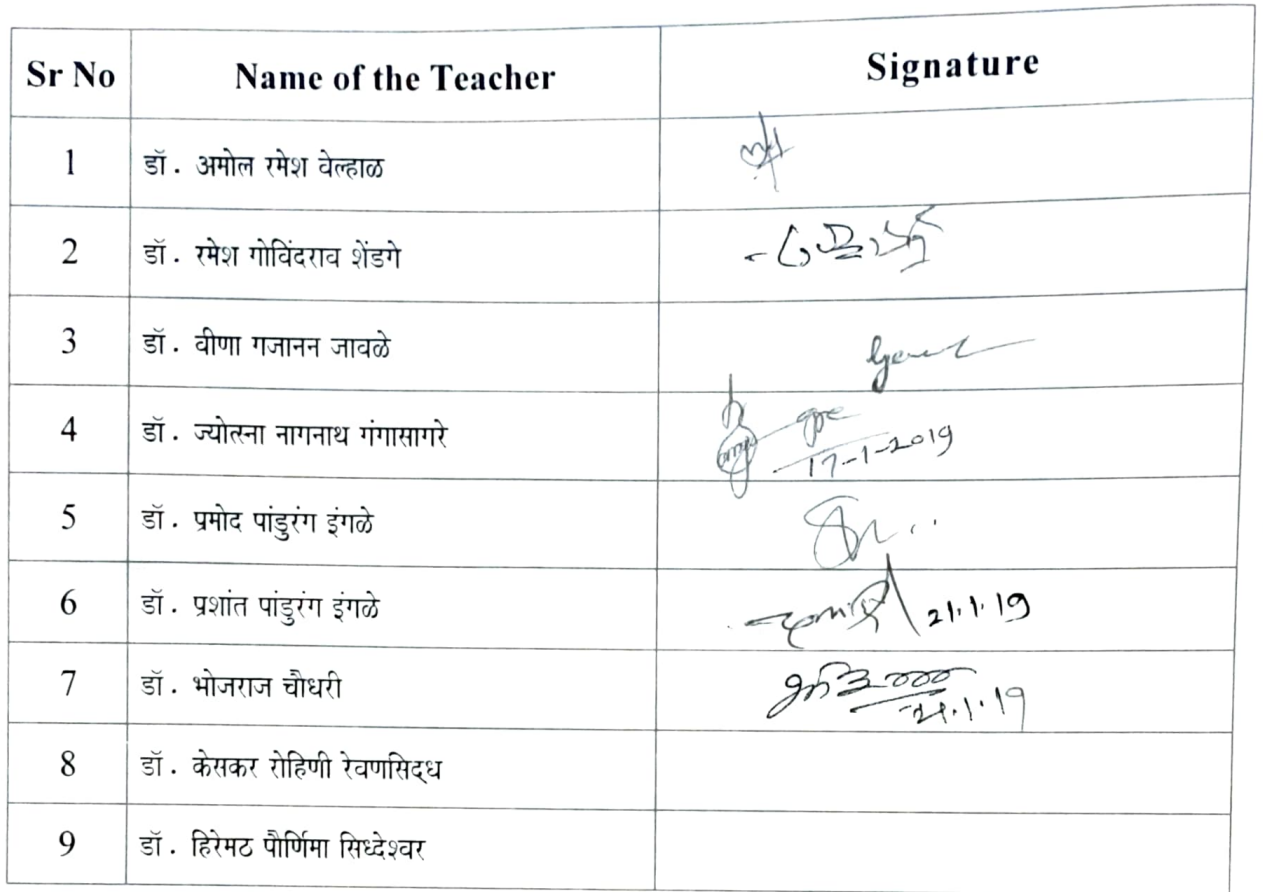 Sr No Name of the Teacher Signature
1 डॉ. अमोल रमेश वेल्हाळ
2 डॉ. रमेश गोविंदराव शेंडगे
3 डॉ. वीणा गजानन जावळे
4 डॉ. ज्योत्स्ना नागनाथ गंगासागरे 17-1-2019
5 डॉ. प्रमोद पांडुरंग इंगळे
6 डॉ. प्रशांत पांडुरंग इंगळे 21.1.19
7 डॉ. भोजराज चौधरी 21.1.19
8 डॉ. केसकर रोहिणी रेवणसिद्ध
9 डॉ. हिरेमठ पौर्णिमा सिध्देश्वर